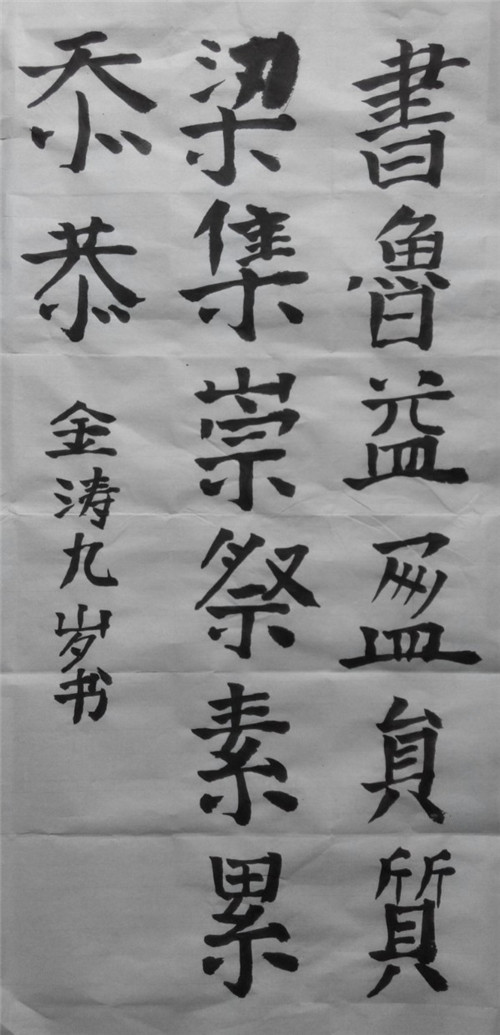 書魯益盈員質
梁集崇祭素累
忝恭
金涛九岁书